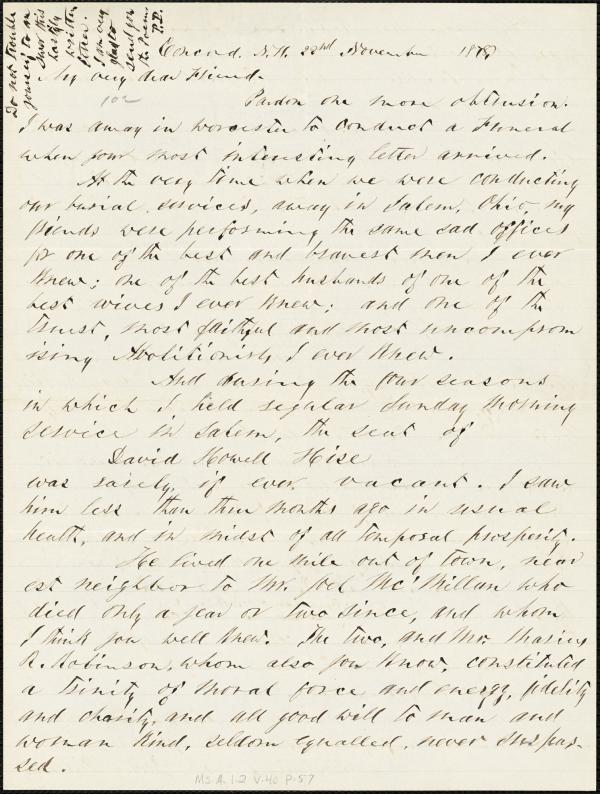 Do not trouble
yourself to an
swer this
hastily
written
letter.
I am very
glad to
send you
the Poem.
P.P.
Concord. N.H. 22nd November 1878
My very dear Friend.
102
Pardon one more obtrusion.
I was away in Worcester to conduct a Funeral
when your most interesting letter arrived.
At the very time when we were conducting
our burial services, away in Salem, Ohio, my
friends were performing the same sad offices
for one of the best and bravest men I ever
knew; one of the best husbands of one of the
best wives I ever knew; and one of the
truest, most faithful and most uncomprom
ising Abolitionists I ever knew.
And during the four seasons
in which I held regular Sunday morning
service in Salem, the seat of
David Howell Hise
was rarely, if ever, vacant. I saw
him less than three months ago in usual
health, and in midst of all temporal prosperity.
He lived one mile out of town, near
est neighbor to Mr. Joel McMillan who
died only a year or two since, and whom
I think you well knew. The two, and Mr. Marius
R. Robinson, whom also you know, constituted
a trinity of moral force and energy, fidelity
and charity, and all good will to man and
woman kind, seldom equalled, never surpas-
sed.
Ms. A. 1.2 V. 40 P. 57